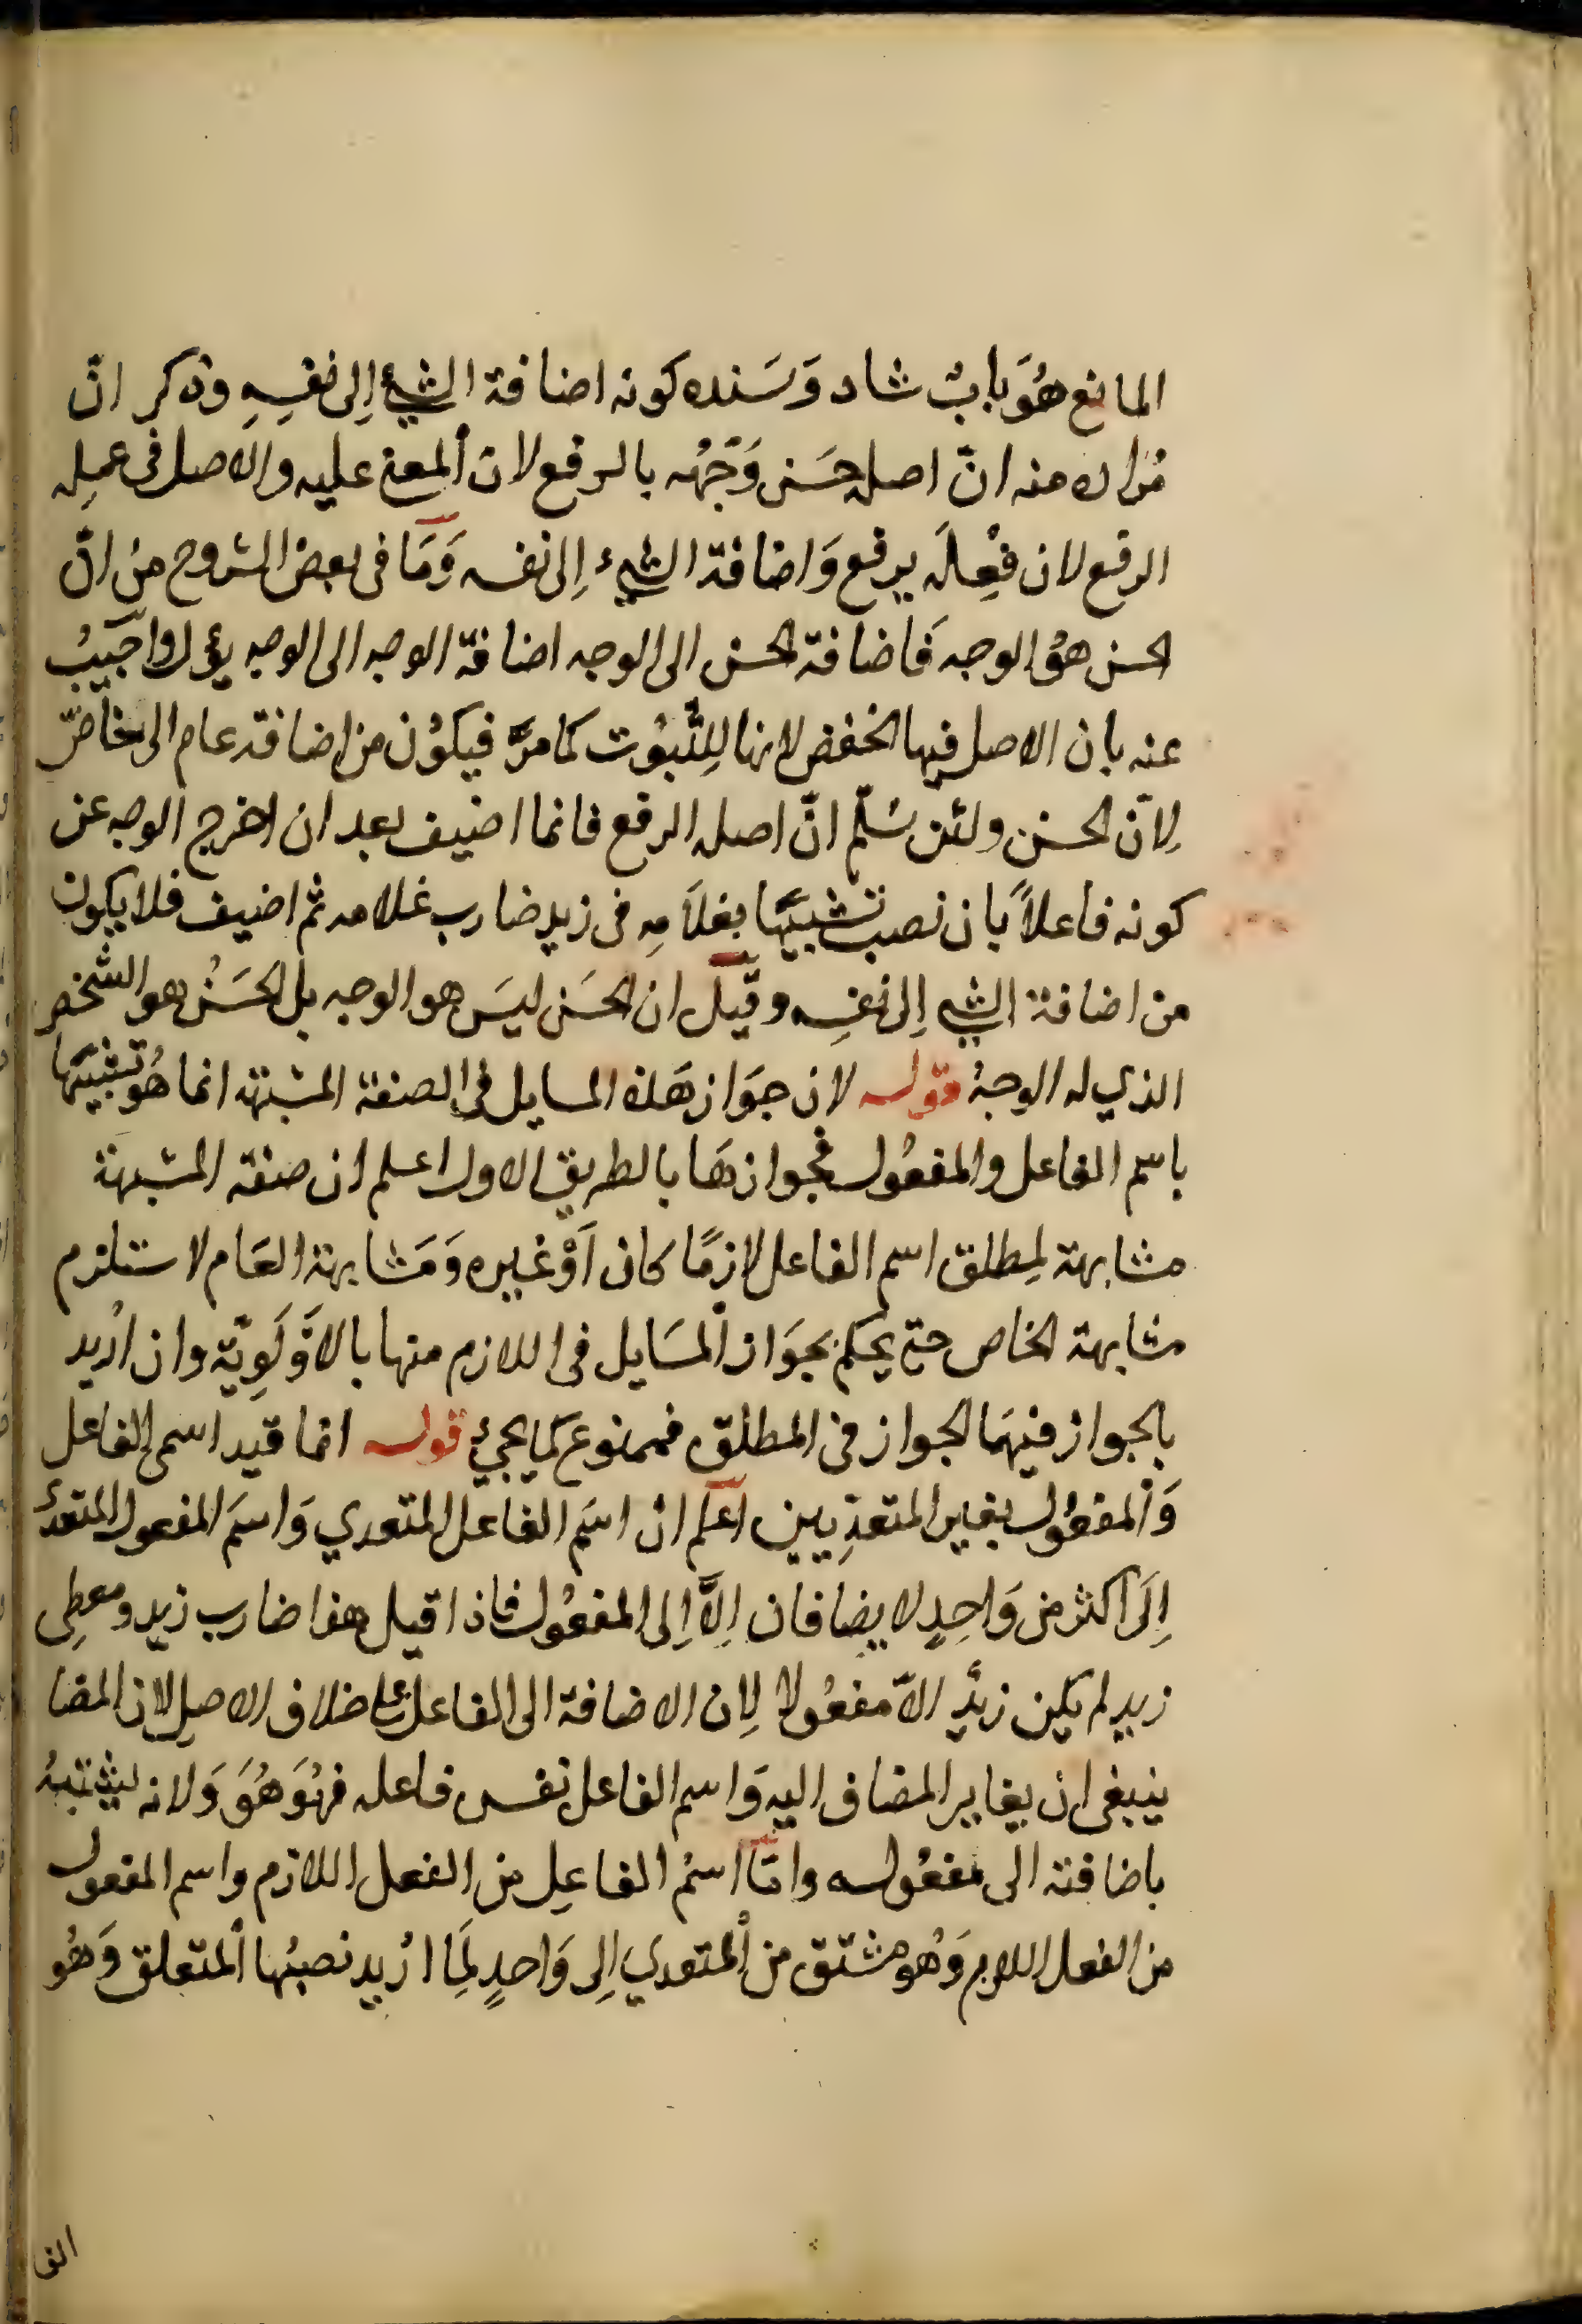 المانع هُوَ بابٌ شاد وَسَنده كونه اضافة الشيء إلى نفسِهِ وذكر انّ
مُراده منه انّ اصل حسَن وَجْهُه بالرفع لان المعنى عليه والاصل فى عمله
الرفع لان فِعْلَه يرفع وَاضافة الشيء إلى نفسه وَمَا فى بعض الشروح من انّ
الحسن هُو الوجه فَاضافة الحسن الى الوجه اضافة الوجه الى الوجه يؤل واجيبُ
عنه بان الاصل فيها الخفض لانها للِثُّبُوت كما مرَّ فيكوُن من اضافة عام الى خاصّ
لِانّ الحسن ولئن سُلّم انّ اصله الرفع فانما اضيف بعد ان اخرج الوجه عن
كونه فاعلاً بان نصب تشبيهًا بغلاَمِه فى زيد ضارب غلامه ثم اضيف فلا يكون
من اضافة الشيء إلى نفسِه وقيل ان الحسَن ليسَ هو الوجه بل الحسَنُ هو الشخص
الذي له الوجهُ قوله لان جوَاز هَذه المسايل فى الصفة المشبهة انما هُو تشبيهًا
باسم الفاعل والمفعُول فجوازهَا بالطريق الاول اعلم ان صفة المشبهة
مشابهة لمِطلق اسم الفاعل لازمًا كان أوْ غيره وَمَشابهة العَام لا ستلزم
مشابهة الخاص حتى يحكم بجوَاز المسَايل فى اللازم منها بالاَوْلَوِيّة وان ارُيد
بالجواز فيهَا الجواز فى المطلق فممنوع كما يجيئ قوله انما قيد اسمى الفاعل
وَالمفعُول بغير المتعدِيين اعلم ان اسَم الفاعل المتعدي وَاسَم المفعول المتعدّي
إِلَى اكثر من وَاحِدٍ لا يضافان إِلاَّ إِلى المفعُول فاذا قيل هذا ضارب زيد ومعطِى
زيد لم يكن زيدٌ الاّ مفعُولا لِان الاضافة الى الفاعل على خلاف الاصل لان المضا
ينبغى ان يغاير المضاف اليه وَاسم الفاعل نفس فاعله فهُوَ هُوَ وَلانه يشتبهُ
باضافته الى مفعُوله وامّا اسمُ الفاعِل من الفعل اللازم واسم المفعول
من الفعل اللازم وَهُو مشتق من المتعدي إلى وَاحدٍ لَمِا ارُيد نصبُها المتعلق وَهُو
الفا